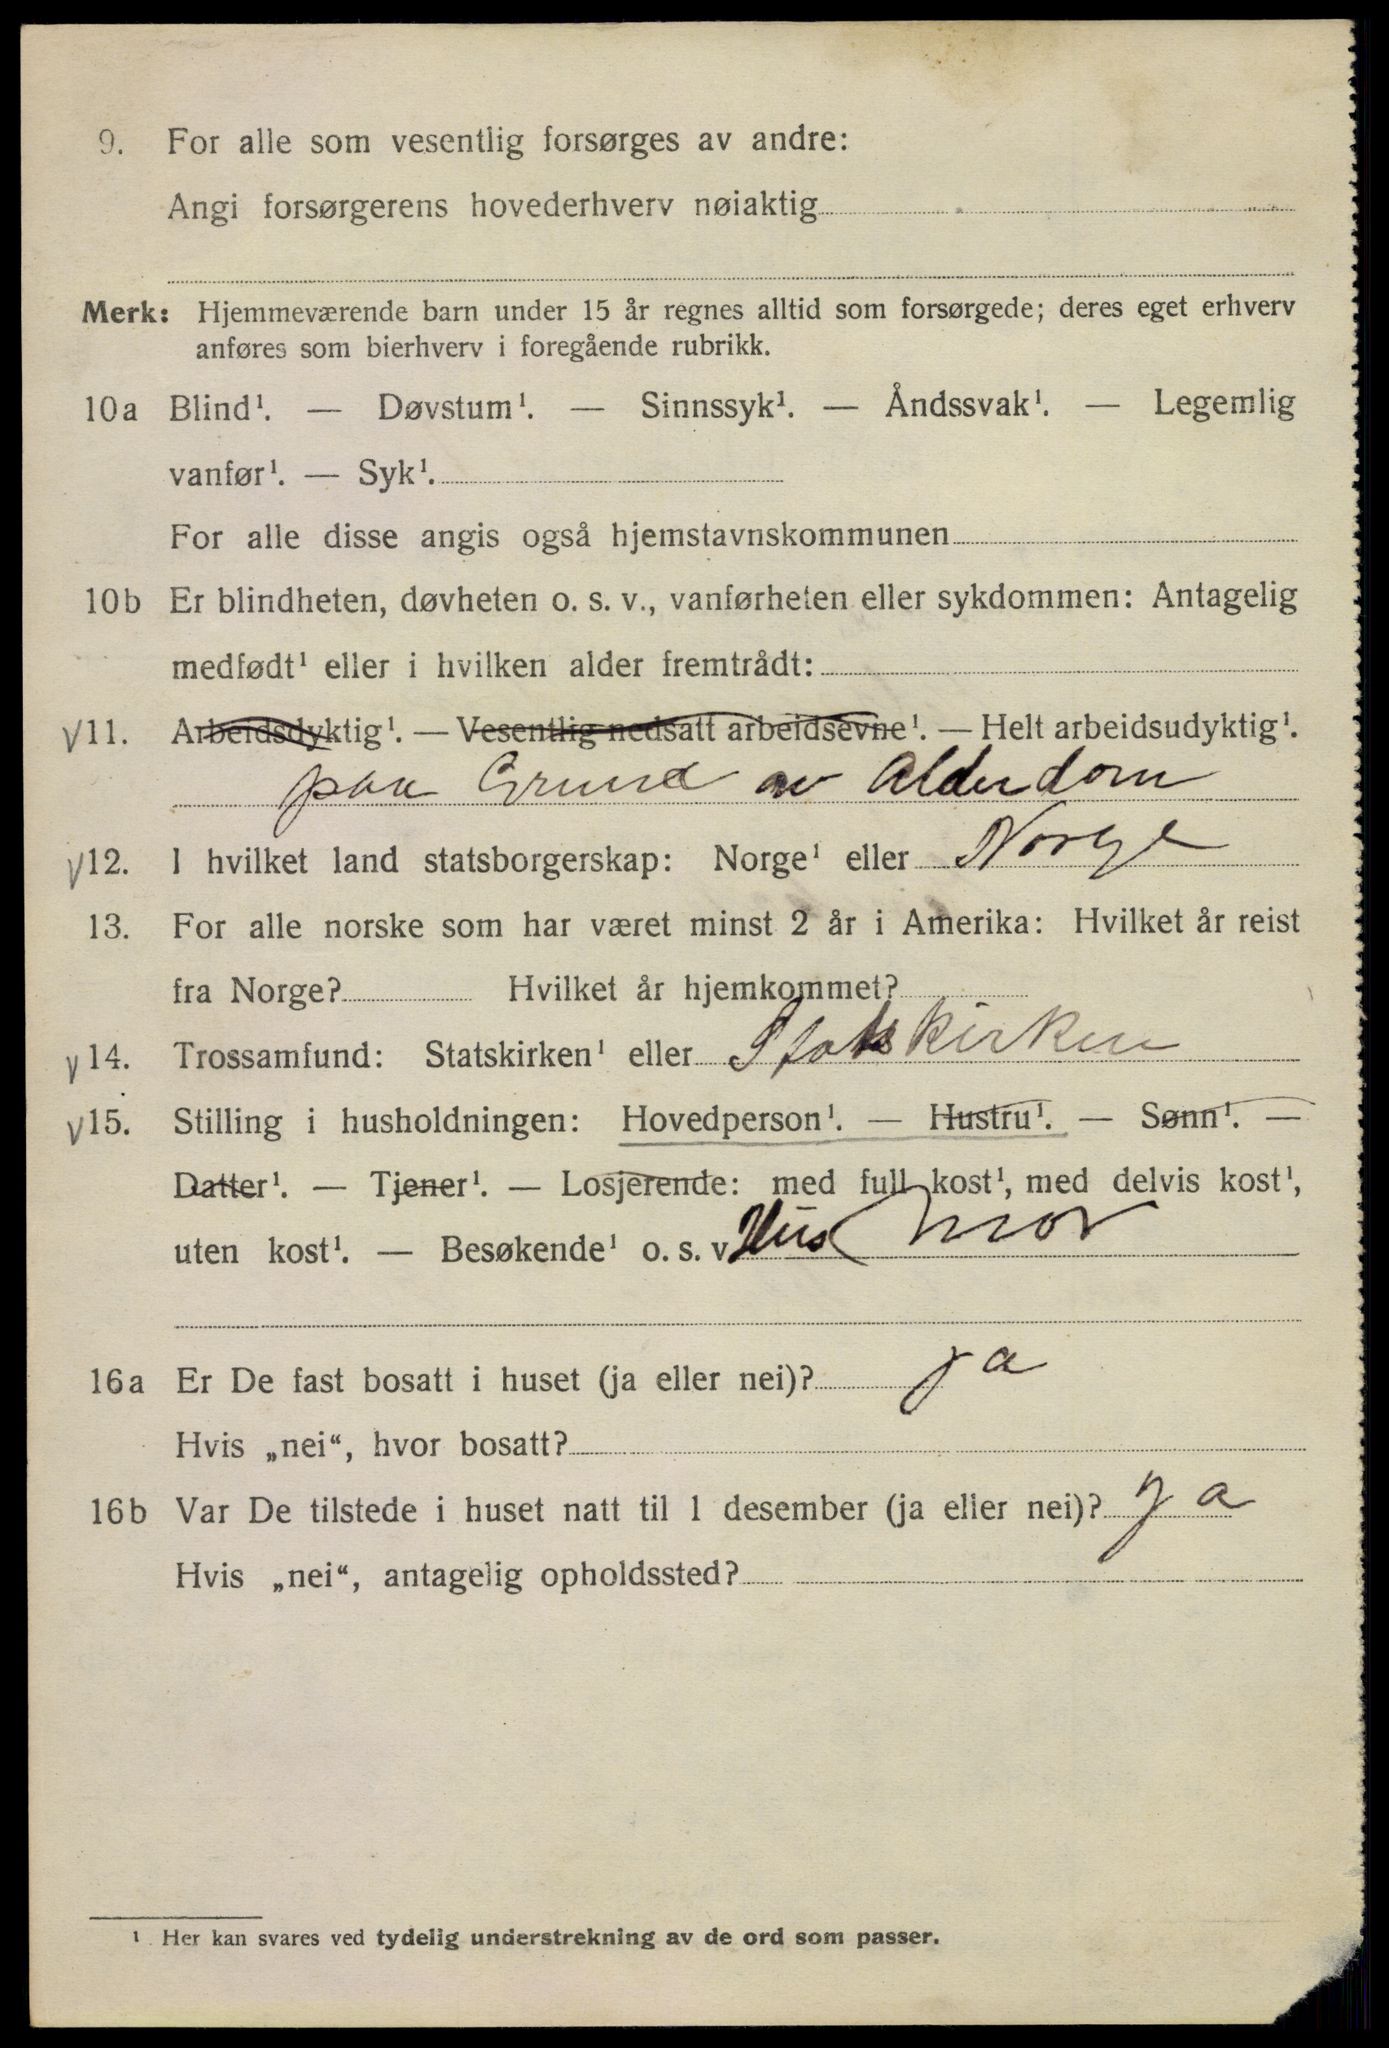 9. For alle som vesentlig forsørges av andre:
Angi forsørgerens hovederhverv nøiaktig
Merk: Hjemmeværende barn under 15 år regnes alltid som forsørgede; deres eget erhverv
anføres som bierhverv i foregående rubrikk.
10a Blind¹. — Døvstum¹. — Sinnssyk¹. — Åndssvak¹. — Legemlig
vanfør¹. — Syk¹.
For alle disse angis også hjemstavnskommunen
10b Er blindheten, døvheten o. s. v., vanførheten eller sykdommen: Antagelig
medfødt¹ eller i hvilken alder fremtrådt:
V11. Arbeidsdyktig¹. — Vesentlig nedsatt arbeidsevne¹. — Helt arbeidsudyktig¹.
paa Grund av Alderdom
V12. I hvilket land statsborgerskap: Norge¹ eller Norge
13. For alle norske som har været minst 2 år i Amerika: Hvilket år reist
fra Norge? Hvilket år hjemkommet?
V14. Trossamfund: Statskirken¹ eller Statskirken
V15. Stilling i husholdningen: Hovedperson¹. — Hustru¹. — Sønn¹. —
Datter¹. — Tjener¹. — Losjerende: med full kost¹, med delvis kost¹,
uten kost¹. — Besøkende¹ o. s. v. Husmor
16a Er De fast bosatt i huset (ja eller nei)? ja
Hvis „nei“, hvor bosatt?
16b Var De tilstede i huset natt til 1 desember (ja eller nei)? ja
Hvis „nei“, antagelig opholdssted?
¹ Her kan svares ved tydelig understrekning av de ord som passer.